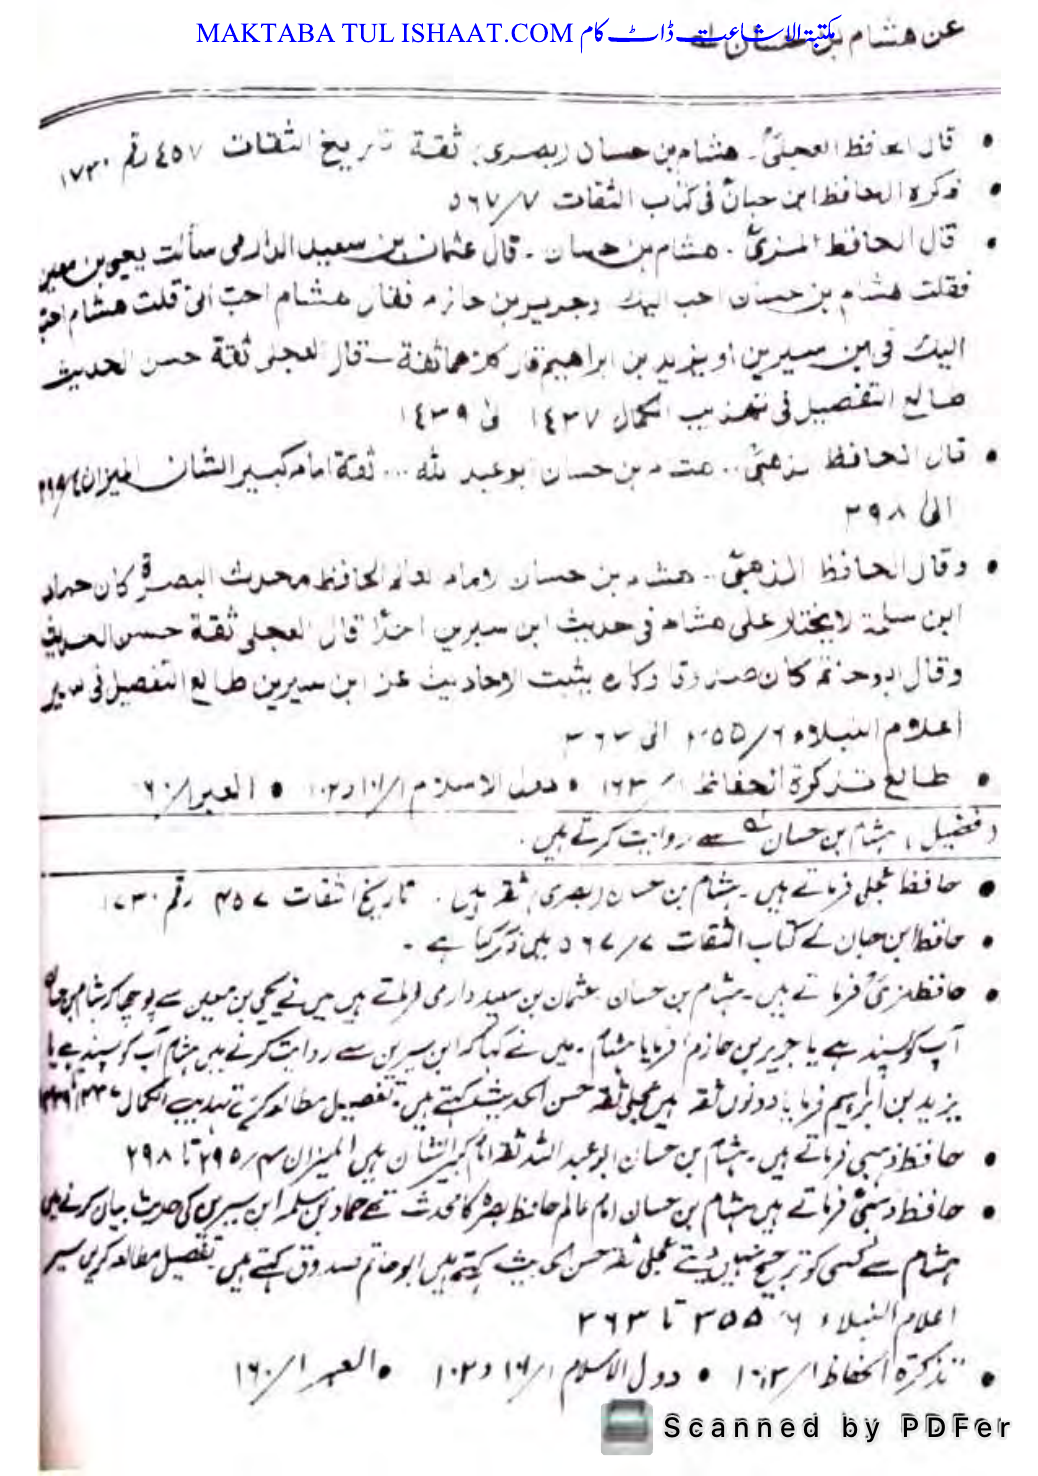 MAKTABA TUL ISHAAT.COM مکتبۃ الاشاعت ڈاٹ کام
عن هشام بن حسان
• قال الحافظ العجلیؒ ۔ هشام بن حسان (بصری) ثقة تاریخ الثقات ٤٥٧ رقم ١٧٣٠
• ذكره الحافظ ابن حبانؒ فی کتاب الثقات ٥٦٧/٧
• قال الحافظ المزیؒ ۔ هشام بن حسان ۔ قال عثمان بن سعید الدارمی سألت یحیی بن معین
فقلت هشام بن حسان احب الیك وجریر بن حازم فقال هشام احب الیّ قلت هشام احبّ
الیك فی ابن سیرین او یزید بن ابراهیم قال کلاهما ثقة ــ قال العجلی ثقة حسن الحدیث
طالع التفصیل فی تهذیب الکمال ١٤٣٧ الیٰ ١٤٣٩
• قال الحافظ الذهبیؒ .. هشام بن حسان ابو عبد الله ... ثقة امام کبیر الشان المیزان
الیٰ ٢٩٨
• وقال الحافظ الذهبیؒ .. هشام بن حسان الامام العالم الحافظ محدث البصرة کان حماد
ابن سلمة لا یختار علی هشام فی حدیث ابن سیرین احدًا قال العجلی ثقة حسن الحدیث
وقال ابو حاتم کان صدوقا وکان یثبت الاحادیث عن ابن سیرین طالع التفصیل فی سیر
اعلام النبلاء ٣٥٥/٦ الی ٣٦٣
• طالع تذکرة الحفاظ ١٦٣/١ • دول الاسلام ١٠١/١ و ١٠٢ • العبر ١٦٠/١
(فضیل) ہشام بن حسان سے روایت کرتے ہیں .
• حافظ عجلی فرماتے ہیں ۔ ہشام بن حسان (بصری) ثقہ ہیں . تاریخ الثقات ۴۵۷ رقم ۱۷۳۰
• حافظ ابن حبان نے کتاب الثقات ۵۶۷/۷ میں ذکر کیا ہے ۔
• حافظ مزیؒ فرماتے ہیں ۔ ہشام بن حسان عثمان بن سعید دارمی فرماتے ہیں میں نے یحیٰی بن معین سے پوچھا کہ ہشام بن حسان
آپ کو پسند ہے یا جریر بن حازم فرمایا ہشام ۔ میں نے کہا کہ ابن سیرین سے روایت کرنے میں ہشام آپ کو پسند ہے یا
یزید بن ابراہیم فرمایا دونوں ثقہ ہیں عجلی ثقہ حسن الحدیث کہتے ہیں ۔ تفصیل مطالعہ کرے تہذیب الکمال
• حافظ ذہبی فرماتے ہیں ۔ ہشام بن حسان ابو عبد اللہ ثقہ امام کبیر الشان ہیں المیزان ۲۹۵/۴ تا ۲۹۸
• حافظ ذہبیؒ فرماتے ہیں ہشام بن حسان امام عالم حافظ بصرہ کا محدث تھے حماد بن سلمہ ابن سیرین کی حدیث بیان کرنے میں
ہشام سے کسی کو ترجیح نہیں دیتے عجلی ثقہ حسن الحدیث کہتے ہیں ابو حاتم صدوق کہتے ہیں تفصیل مطالعہ کریں سیر
اعلام النبلاء ۶/ ۳۵۵ تا ۳۶۳
• تذکرۃ الحفاظ ۱۶۳/۱ • دول الاسلام ۱۰۱/۱ و ۱۰۲ • العبر ۱۶۰/۱
Scanned by PDFer